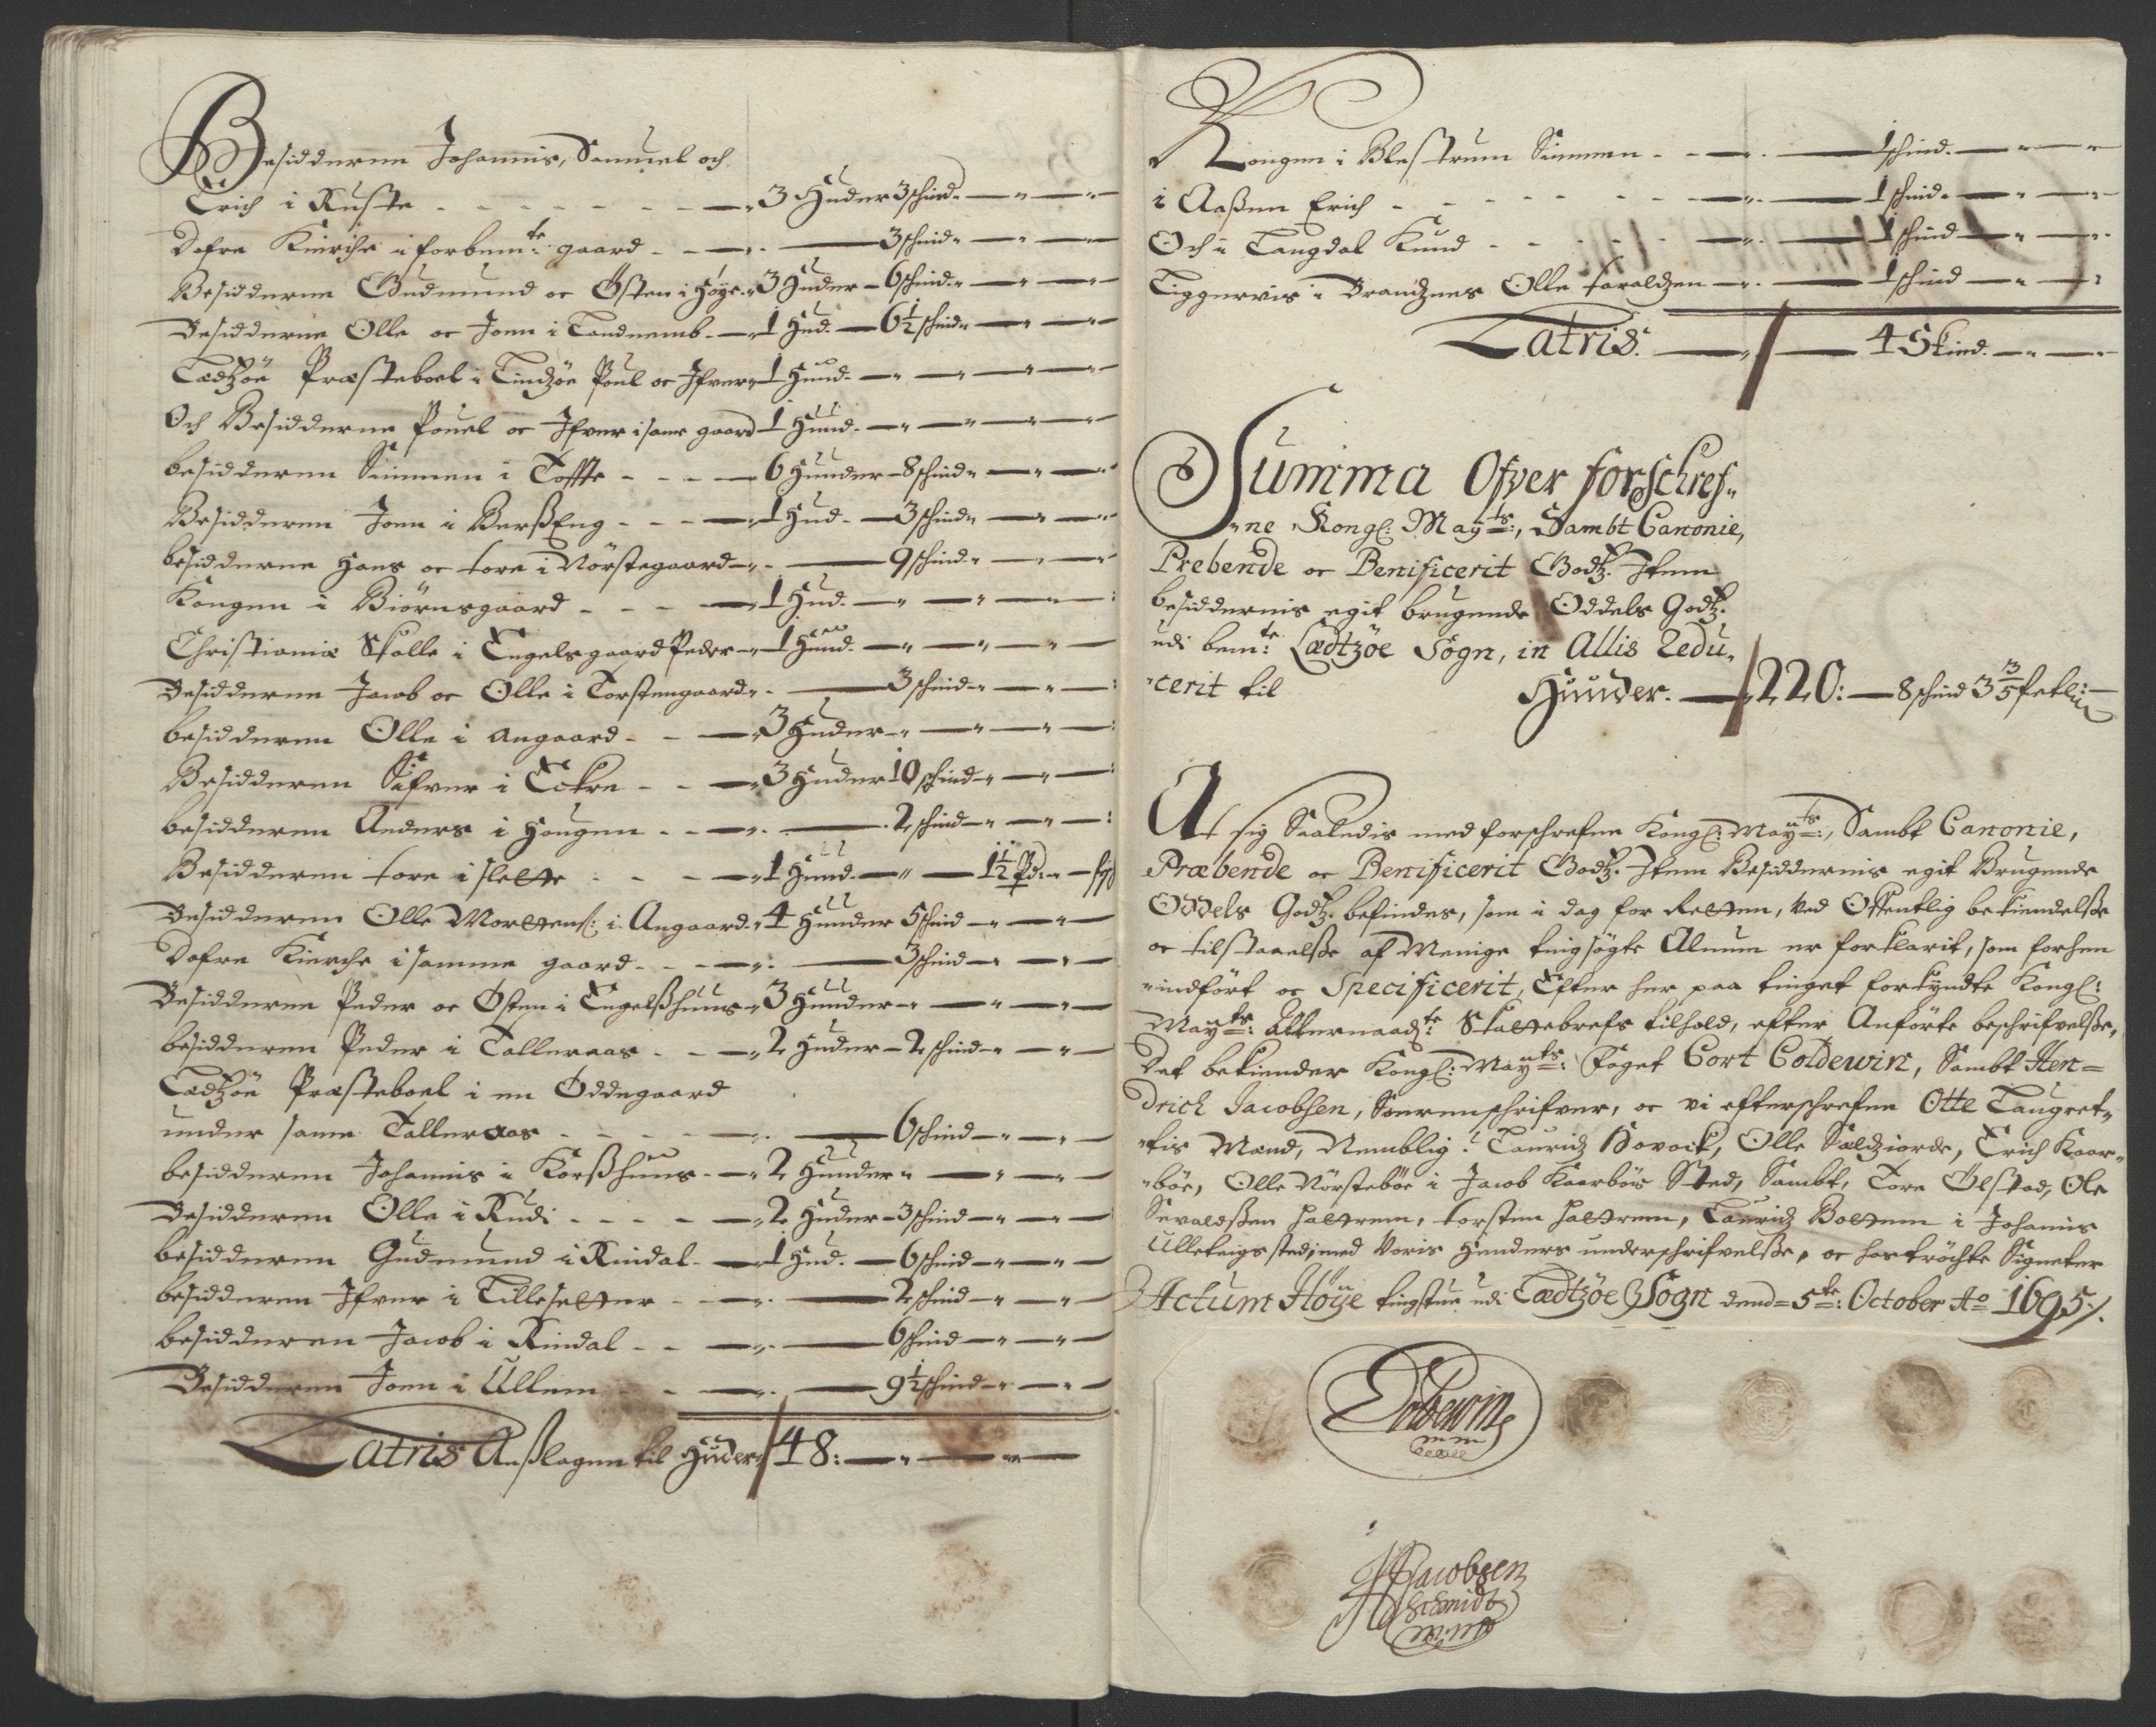 Besidderne Johannis, Samuel och
Erich i Ruste - - - - - - - 3 Huder 3 schind
Dofre Kierche i forbemte: gaard - - - 3 schind
Besidderne Gudmund oc Østen i Høye 3 Huder - 6 schind
Besidderne Olle oc Joen i Landnemb - 1 Hud - 6½ schind
Lædtzøe Præsteboel i Lindzøe Poul oc Ifver 1 Hud
Och Besidderne Pouel oc Ifver i same gaard 1 Hud
besidderen Simmen i Toffte - - - 6 Huder - 8 schind
Besidderen Joen i BerßEng - - - 1 Hud - 3 schind
besidderne Hans oc tore i Nörstegaard - 9 schind
Kongen i Biörnsgaard - - - 1 Hud
Christianiæ Skolle i Engelsgaard Peder - 1 Hud
Besidderne Jacob oc Olle i Torstengaard - 3 schind
besidderen Olle i angaard - - 3 Huder
Besidderen Sifver i Eckre - - 3 Huder 10 schind
besidderen Anders i Hougen - - 2 schind
Besidderen tore i slette - - - 1 Hud - 1½ ℔
Besidderen Olle Mortens: i Angaard 4 Huder 5 schind
Dofre Kierche i samme gaard - - 3 schind
Besidderne Peder oc Østen i Engelßhuus 3 Huder
besidderen Peder i Talleraas - - 2 Huder - 2 schind
Lædtzøe Præsteboel i en Øddegaard
under same Talleraas - - - 6 schind
besidderen Johannis i Korßhuus - 2 Huder
Besidderen Olle i Rudi - - - 2 Huder - 3 schind
besidderen Gudmund i Rindal - 1 Hud - 6 schind
besidderen Ifver i Tillesetter - - 2 schind
besidderen Jacob i Rindal - - 6 schind
Besidderen Joen i Ullem - - 9½ schind
Latris Anßlagen til Huder 48:
Kongen i Blestrum Simmen - - 1 schind
i Aaßen Erich - - - - 1 schind
Och i Langdal Knud - - - - 1 schind
Liggervis i Brandznes Olle haraldzen - 1 schind
Latris. 4 Skind.
Summa Ofver forschref-
ne Kongl: Mayts:, Sambt Canonie,
Prebende oc Benificerit Godtz. Item
besiddernis egit brugende Oddels Godtz.
udi bemte: Lædtzöe Sogn, in Allis Redu-
cerit til Huder. 220: - 8 schind 3 3/5
At sig Saaledis med forschrefne Kongl: Mayts:, Sambt Canonie,
Præbende oc Benificerit Godtz. Item Besiddernis egit Brugende
Oddels Godtz. befindes, som i dag for Retten, ved Offentlig bekiendelße
oc tilstaaelße af Menige tingsögte Almue er forklarit, som forhen
indfört oc Specificerit, Efter her paa tinget forkyndte Kongl:
Mayts: Allernaadte: Skattebrefs tilhold, efter Anförte beschrifvelße,
Det bekiender Kongl: Mayts: foget Cort Coldewin, Sambt Hen=
drich Jacobsen, Sorenschrifver, oc vi efterschrefne Otte Laugret-
tis Mænd, Nemblig: Lauridz Hovock, Olle Sældziorde, Erich Kaar-
böe, Olle Nörsteböe i Jacob Kaarböes Sted, Sambt, Tore Ölstad, Ole
Sevaldßen haltrem, torsten haltrem, Lauridz Boltem i Johannis
Ulleteigs sted, med Voris Henders underschrifvelße, oc hoströchte Signeter
Actum Höye tingstue udi Lædtzöe Sogn dend 5te: October Ao 1695/.
Coldewin
mm
HJacobsen
Schmidt